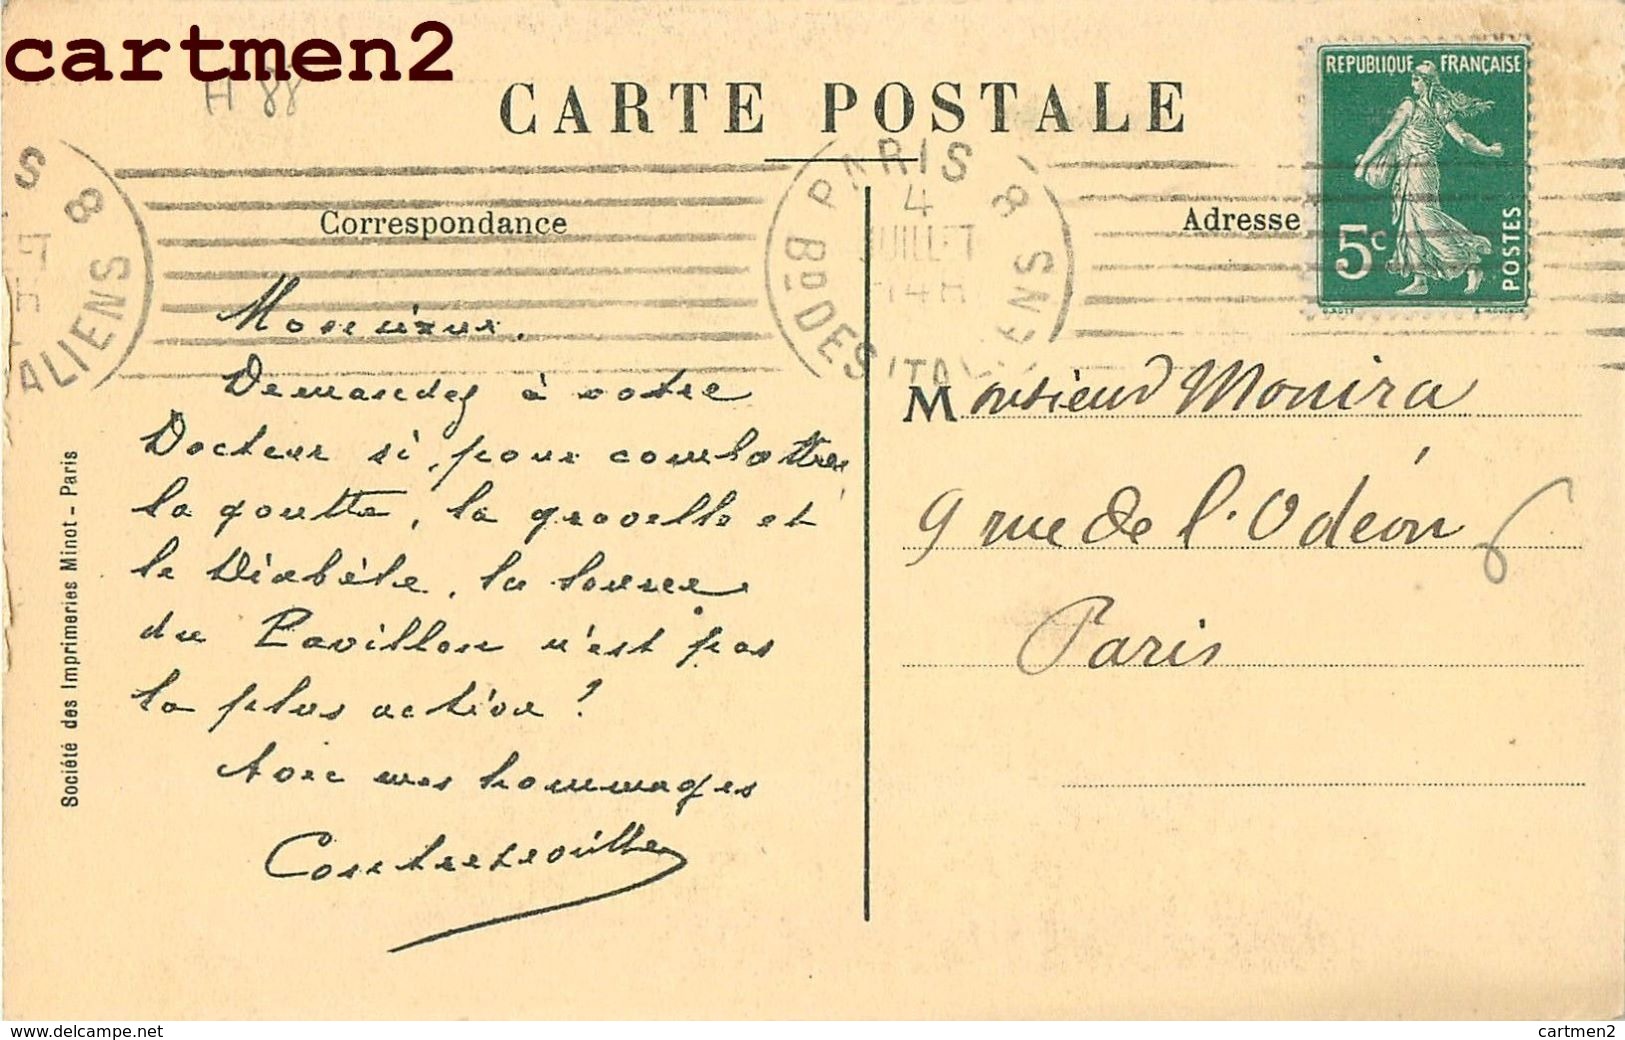 cartmen2
H 88
CARTE POSTALE
REPUBLIQUE FRANÇAISE
5c
POSTES
PARIS 8
4
JUILLET
14H
Bd DES ITALIENS
S 8
ALIENS
Correspondance
Adresse
Monsieur.
Demandez à votre
Docteur si, pour combattre
la goutte, la gravelle et
le Diabète, la source
du Pavillon n'est pas
la plus active ?
Avec mes hommages
Contrexeville
Monsieur Monira
9 rue de l'Odéon
Paris
Société des Imprimeries Minot - Paris
www.delcampe.net
cartmen2